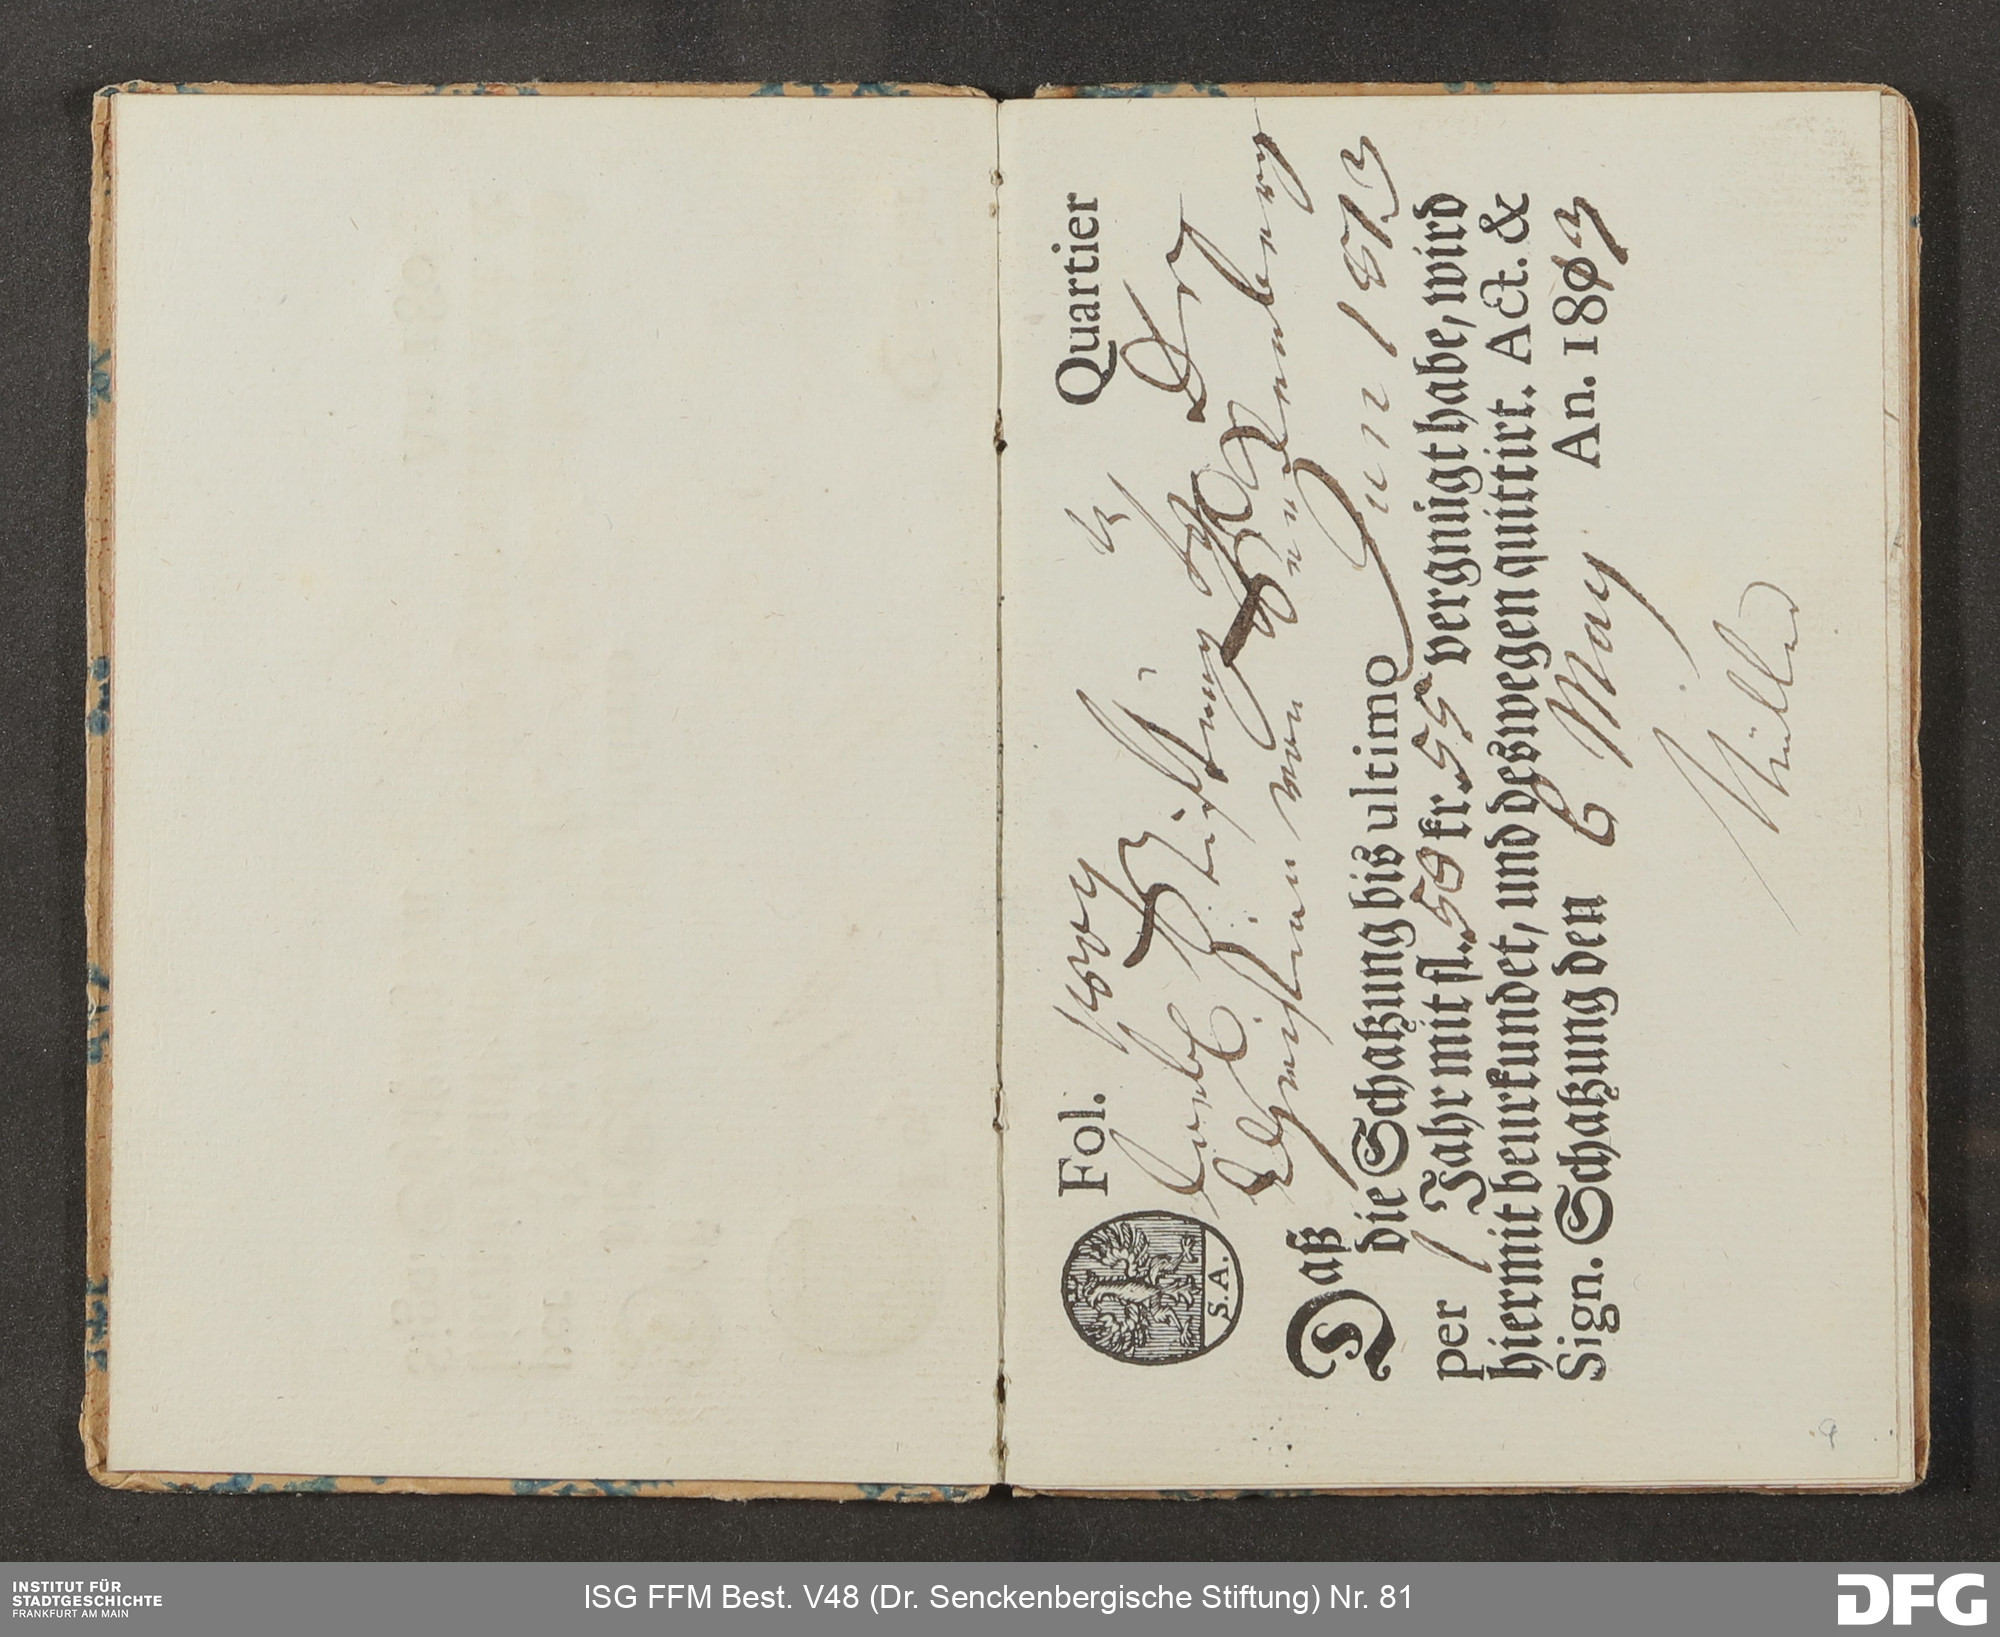 Fol. Quartier
Löbl. Stiftung des Dr
Christian von Senckenberg
Daß
die Schatzung biß ultimo Jun 1813
per 1 Jahr mit fl. 50 kr. 55 vergnügt habe, wird
hiermit beurkundet, und deswegen quittirt. Act. &
Sign. Schatzung den 6 May An. 1813
Müller
S. A.
INSTITUT FÜR
STADTGESCHICHTE
FRANKFURT AM MAIN
ISG FFM Best. V48 (Dr. Senckenbergische Stiftung) Nr. 81
DFG